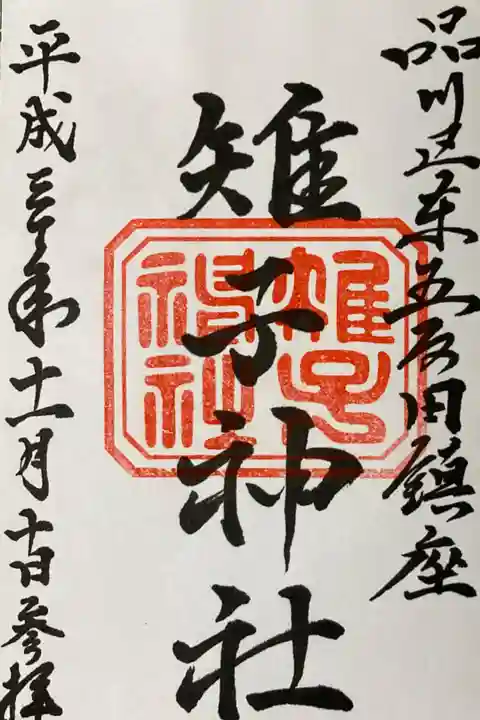 品川区東五反田鎮座
雉子神社
雉子
神社
平成三十年十一月十日参拝